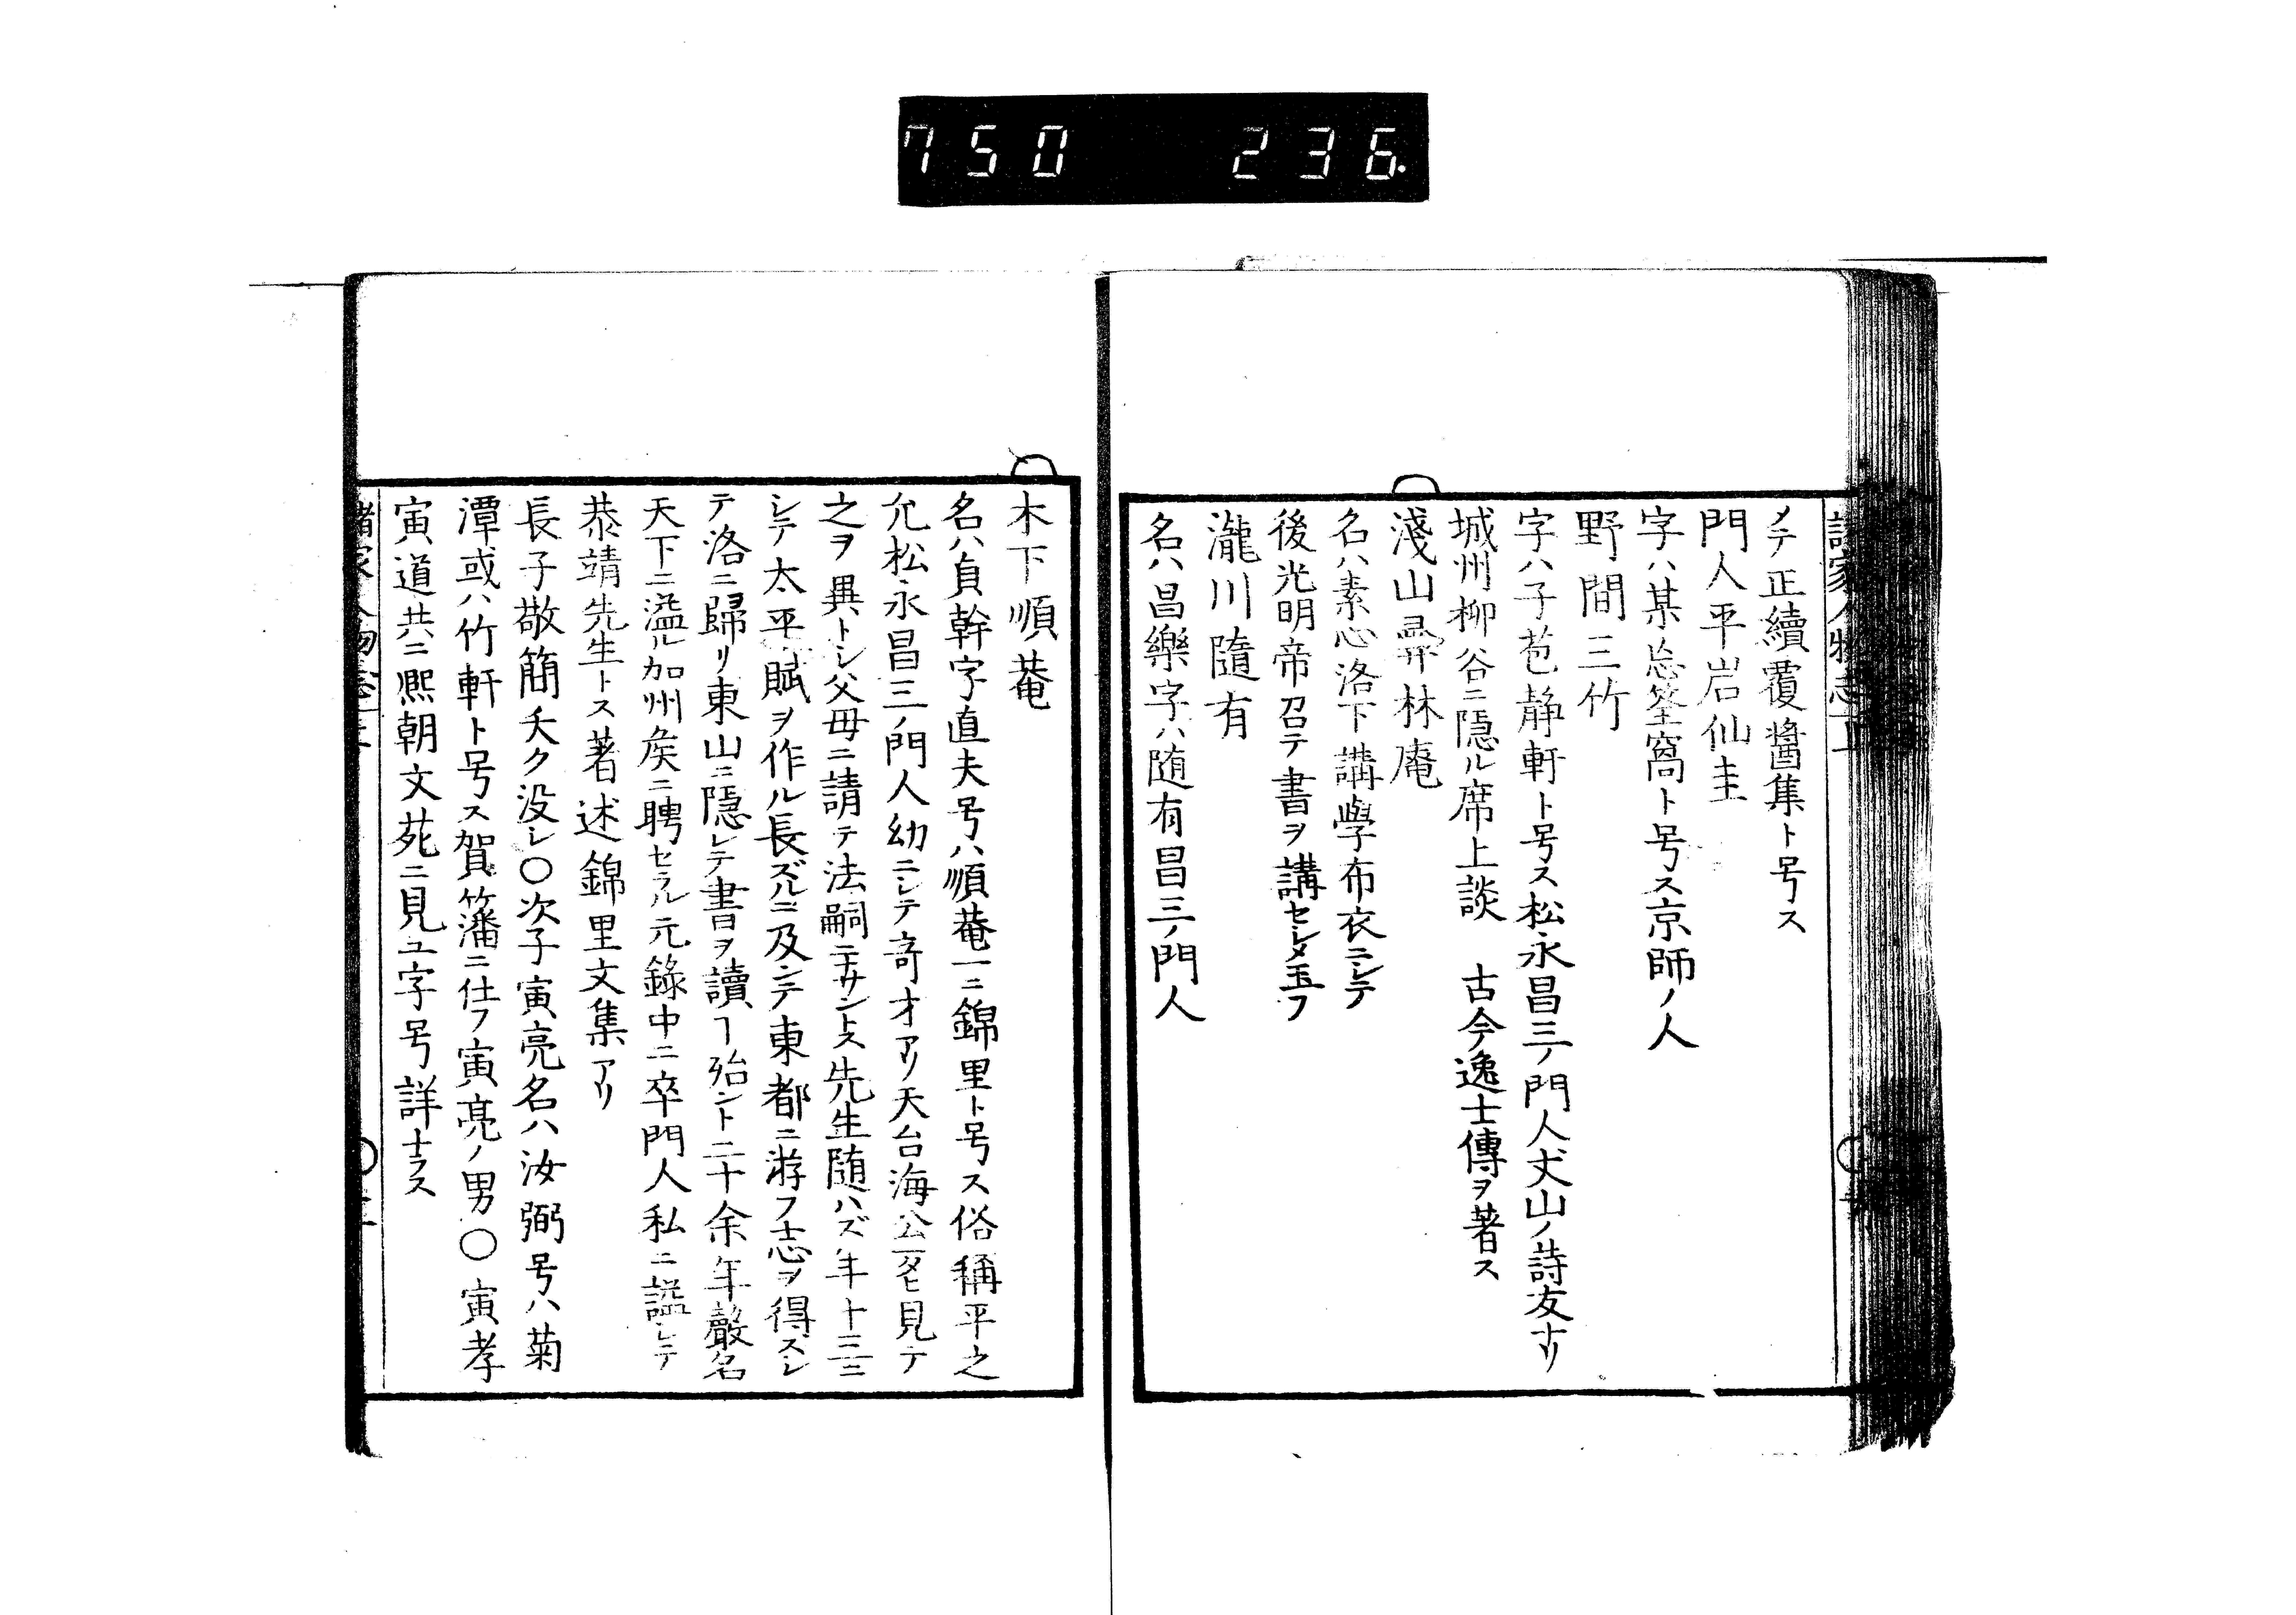 750 236.
メテ正續覆醬集ト号ス
門人平岩仙圭
字ハ某忘筌窩ト号ス京師ノ人
野間三竹
字ハ子苞静軒ト号ス松永昌三ノ門人丈山ノ詩友ナリ
城州柳谷ニ隠ル席上談 古今逸士傳ヲ著ス
淺山林庵
名ハ素心洛下講學布衣ニシテ
後光明帝召テ書ヲ講セシメ玉フ
瀧川隨有
名ハ昌樂字ハ随有昌三ノ門人
木下順菴
名ハ貞幹字直夫号ハ順菴一ニ錦里ト号ス俗稱平之
允松永昌三ノ門人幼ニシテ奇才アリ天台海公一タヒ見テ
之ヲ異トシ父母ニ請テ法嗣ニナサントス先生随ハズ年十三ニ
シテ太平賦ヲ作ル長ズルニ及ンテ東都ニ游フ志ヲ得スシ
テ洛ニ歸リ東山ニ隠レテ書ヲ讀ヿ殆ント二十余年嚴名
天下ニ溢ル加州矦ニ聘セラル元錄中ニ卒門人私ニ謚シテ
恭靖先生トス著述錦里文集アリ
長子敬簡夭ク没レ○次子寅亮名ハ汝弼号ハ菊
潭或ハ竹軒ト号ス賀籓ニ仕フ寅亮ノ男○寅孝
寅道共ニ熈朝文苑ニ見ユ字号詳ナラス